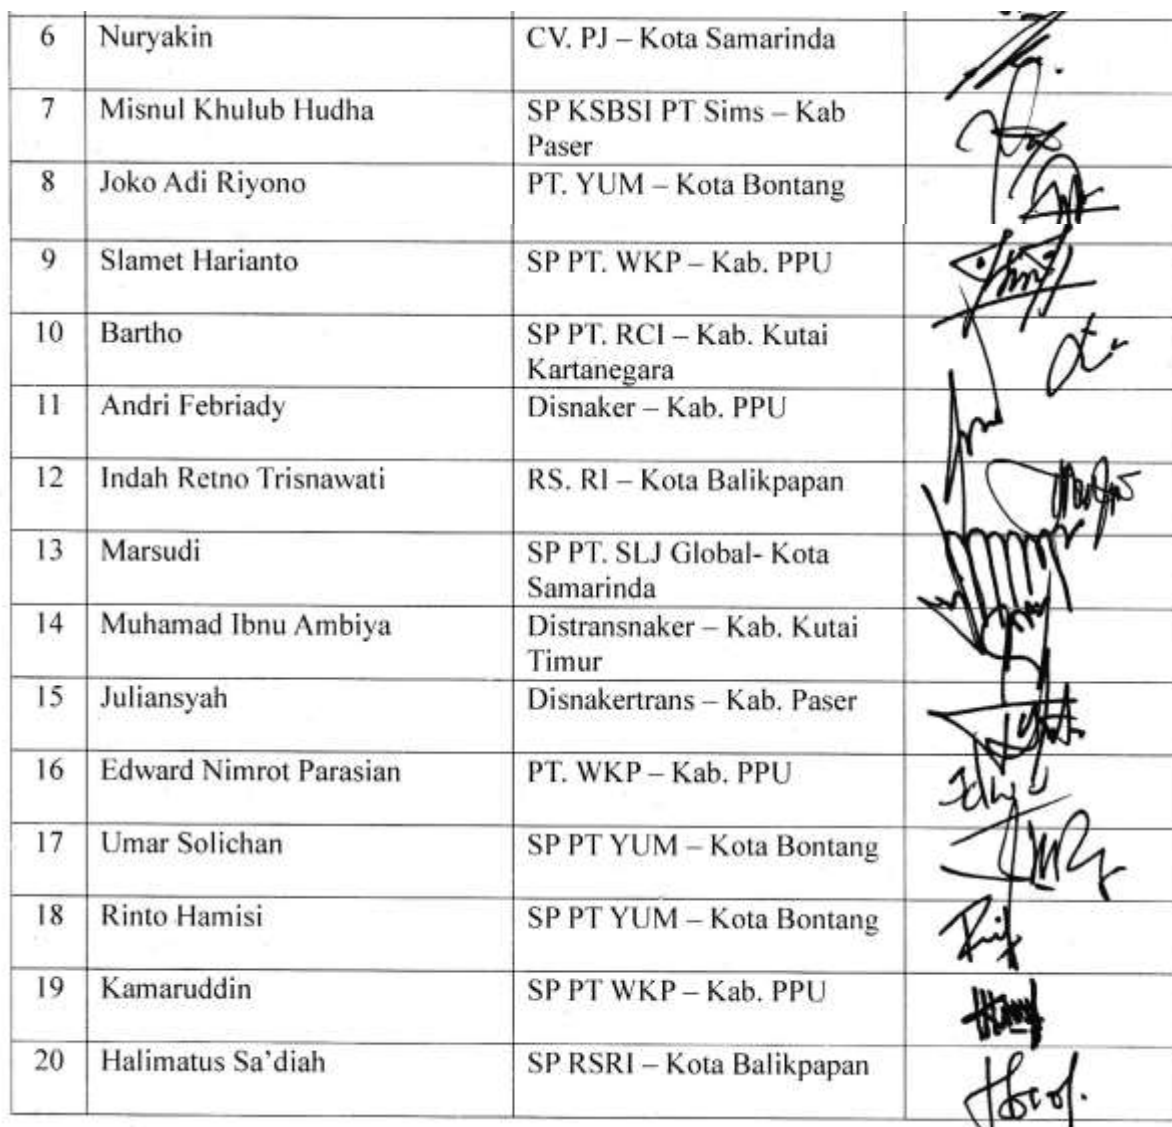 6 Nuryakin CV. PJ – Kota Samarinda
7 Misnul Khulub Hudha SP KSBSI PT Sims – Kab
Paser
8 Joko Adi Riyono PT. YUM – Kota Bontang
9 Slamet Harianto SP PT. WKP – Kab. PPU
10 Bartho SP PT. RCI – Kab. Kutai
Kartanegara
11 Andri Febriady Disnaker – Kab. PPU
12 Indah Retno Trisnawati RS. RI – Kota Balikpapan
13 Marsudi SP PT. SLJ Global- Kota
Samarinda
14 Muhamad Ibnu Ambiya Distransnaker – Kab. Kutai
Timur
15 Juliansyah Disnakertrans – Kab. Paser
16 Edward Nimrot Parasian PT. WKP – Kab. PPU
17 Umar Solichan SP PT YUM – Kota Bontang
18 Rinto Hamisi SP PT YUM – Kota Bontang
19 Kamaruddin SP PT WKP – Kab. PPU
20 Halimatus Sa’diah SP RSRI – Kota Balikpapan